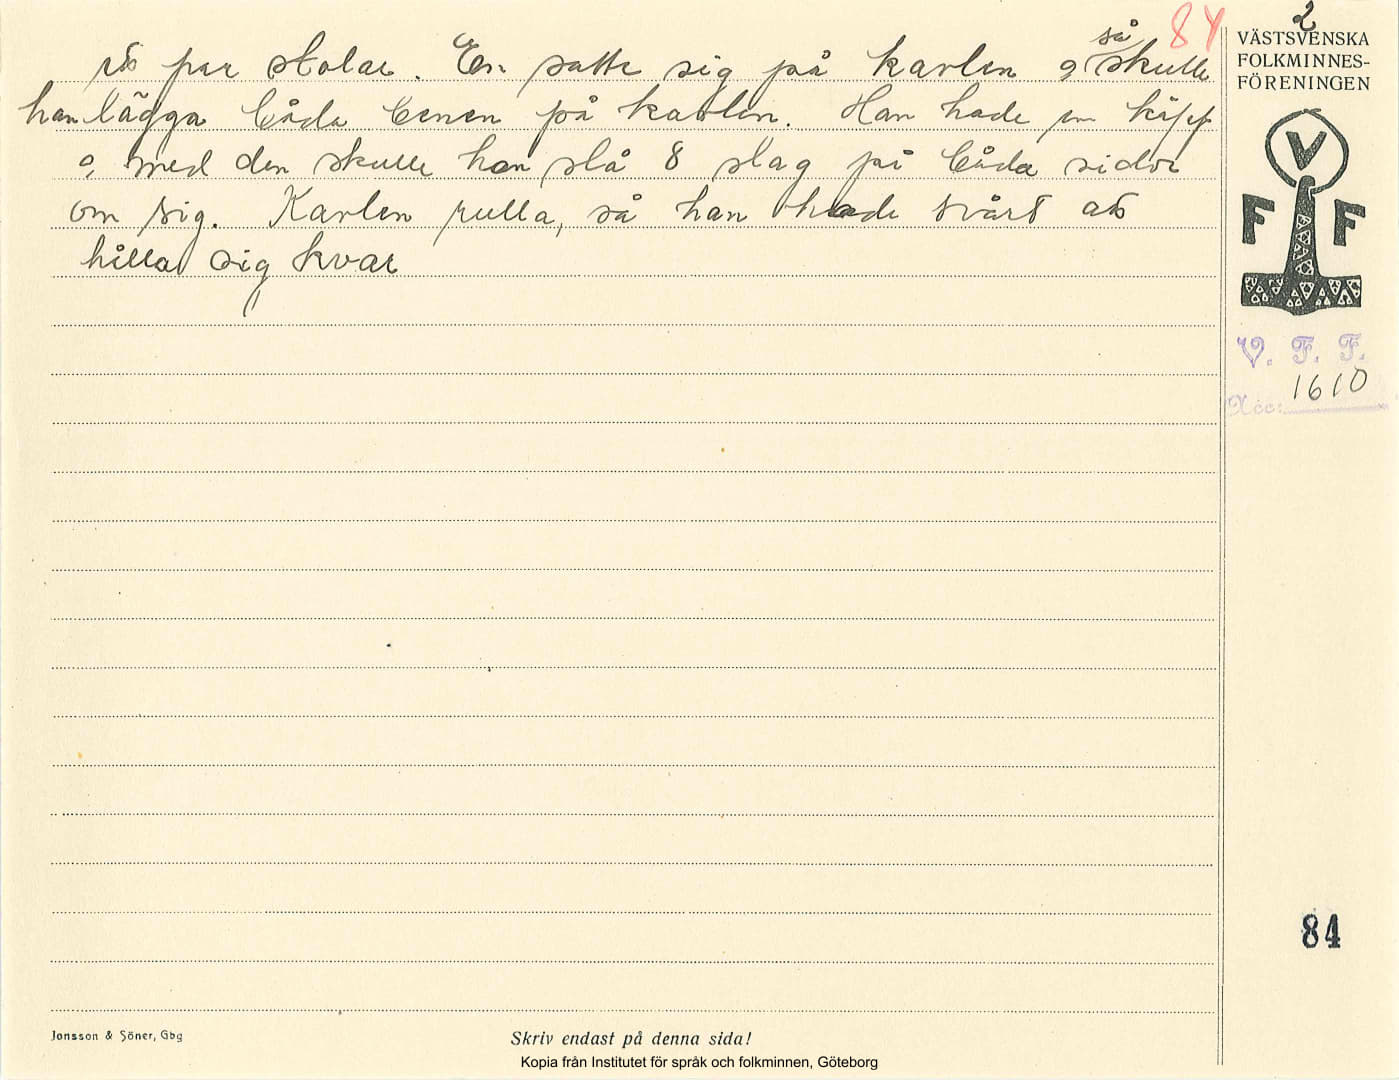 84
2
VÄSTSVENSKA
FOLKMINNES-
FÖRENINGEN
par stolar. En satte sig på kavlen o så skulle
han lägga båda benen på kavlen. Han hade en käpp
o, med den skulle han slå 8 slag på båda sidor
om sig. Kavlen rulla, så han hade svårt att
hålla sig kvar
V
F F
V. F. F.
Acc: 1610
84
Jonsson & Söner, Gbg
Skriv endast på denna sida!
Kopia från Institutet för språk och folkminnen, Göteborg